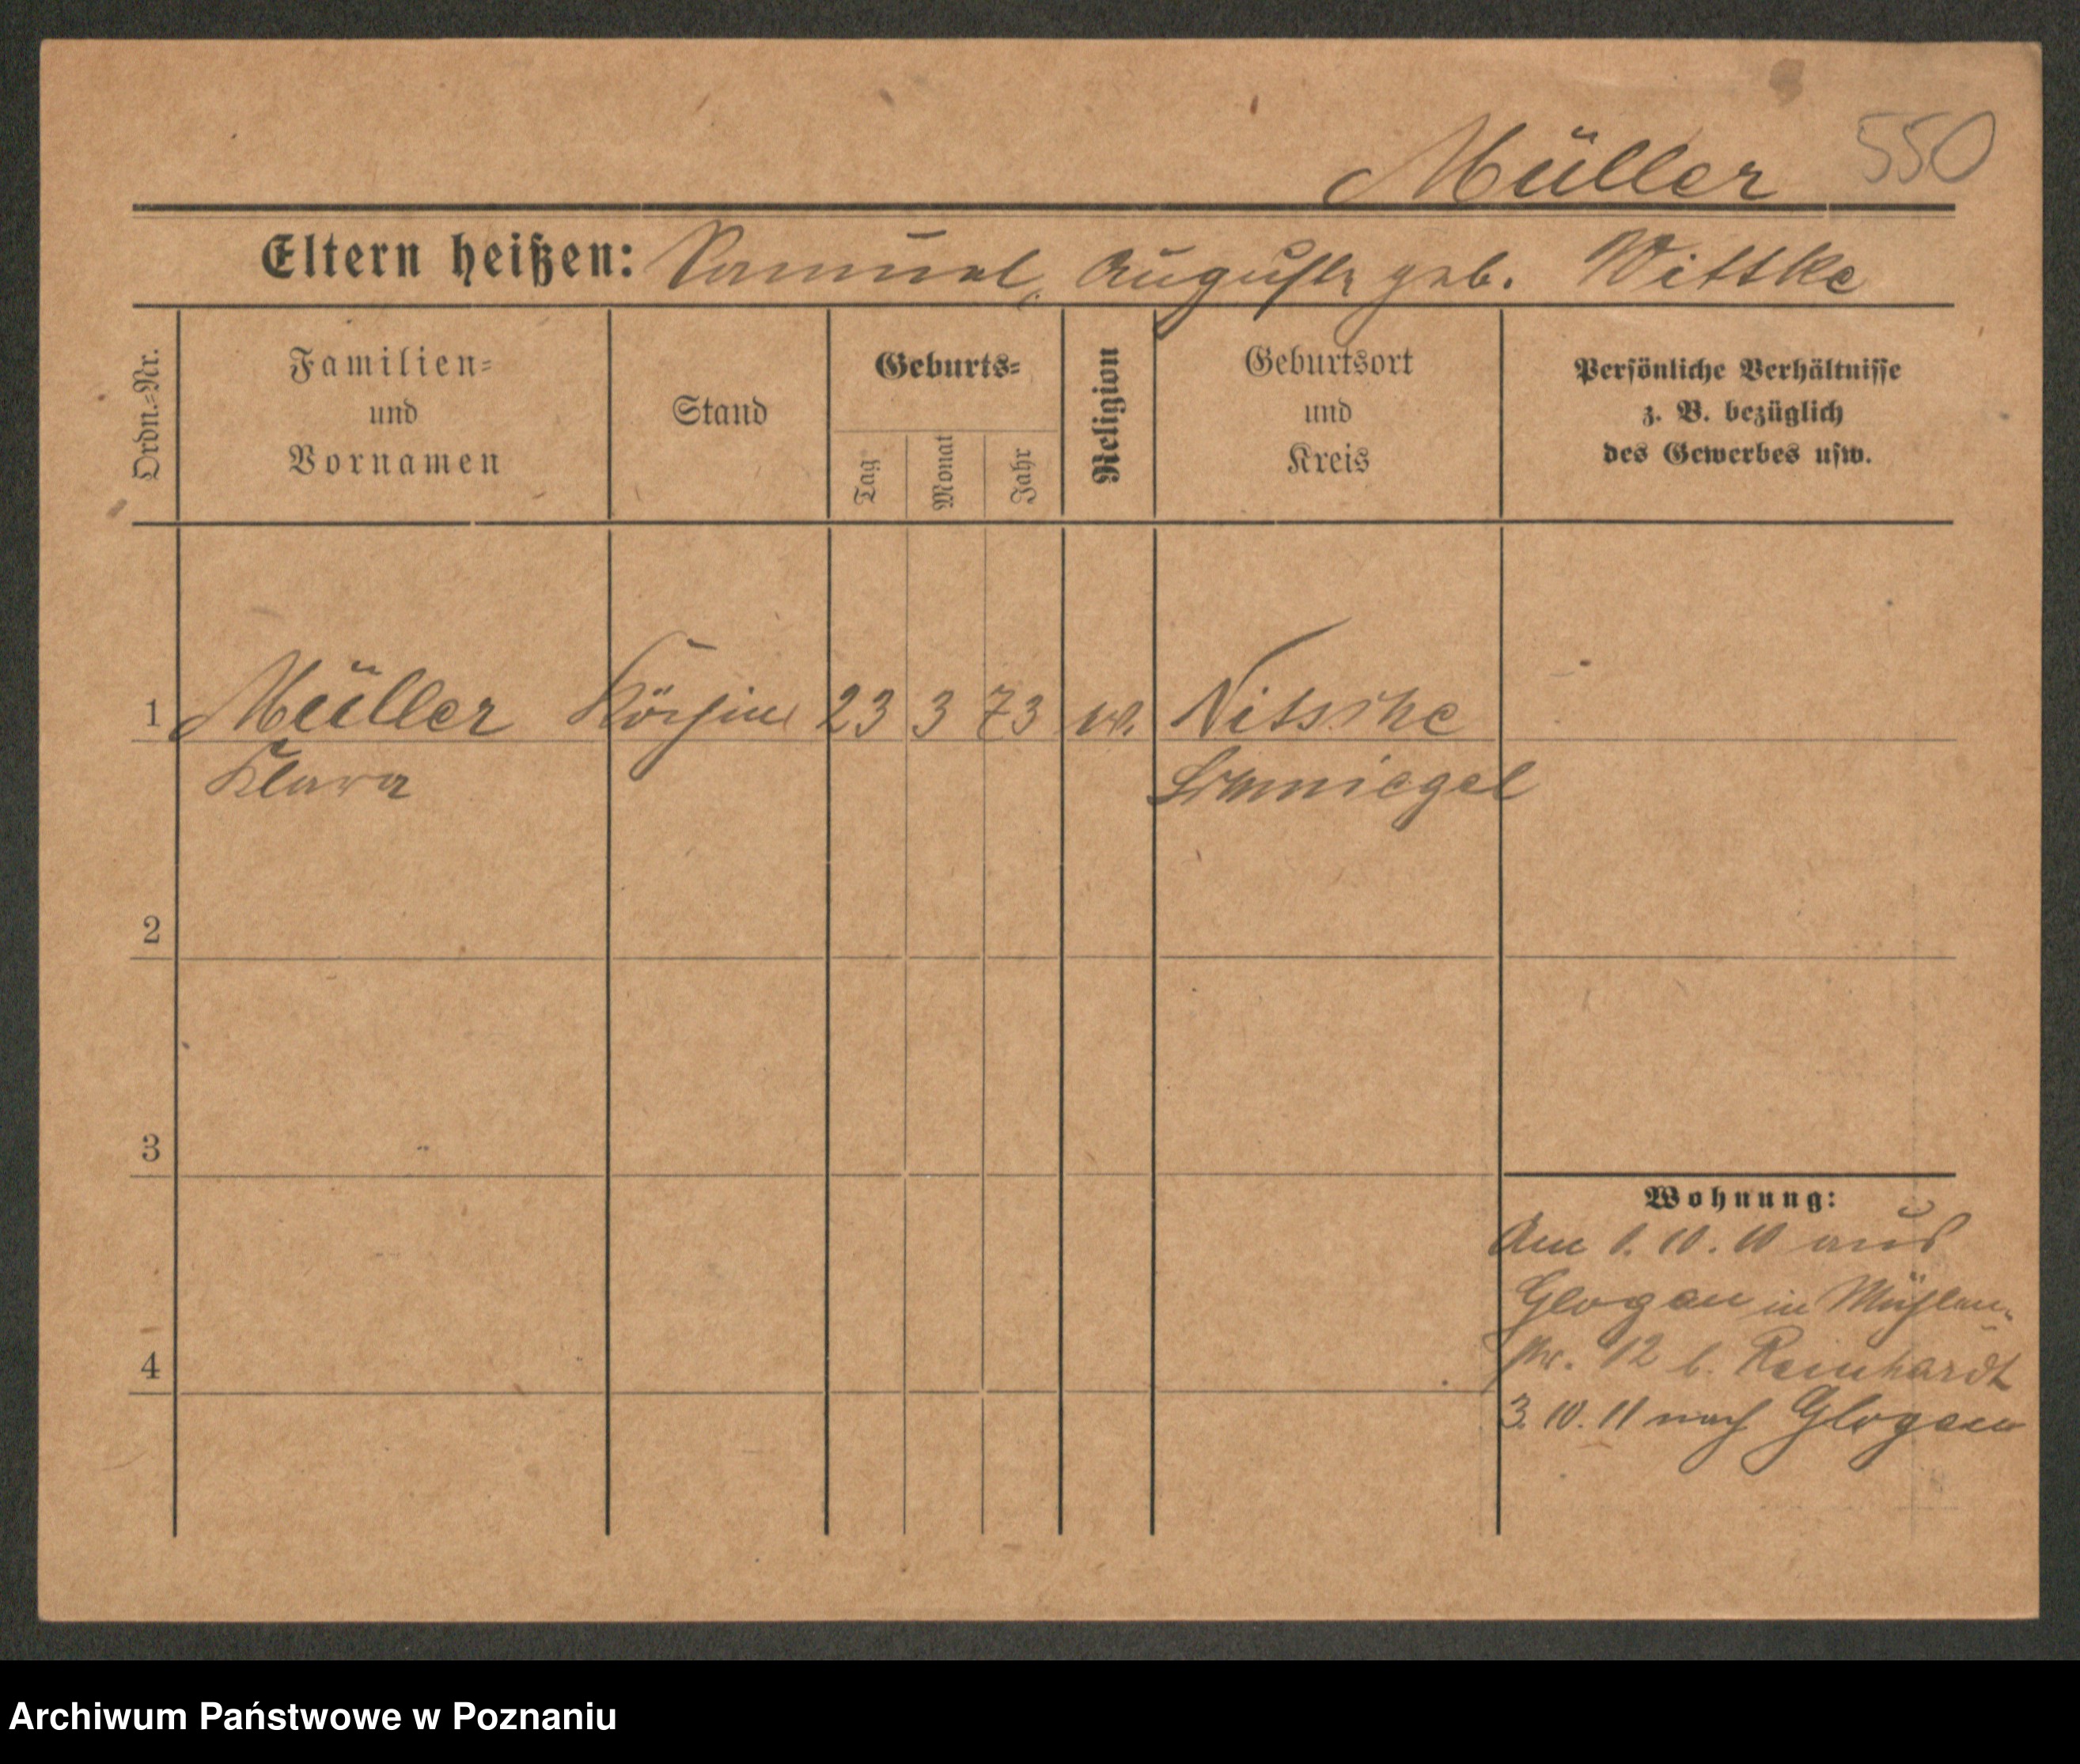 Müller 550
Eltern heißen: Samuel, Auguste geb. Wittke
Ordn.=Nr.
Familien=
und
Vornamen
Stand
Geburts=
Tag
Monat
Jahr
Religion
Geburtsort
und
Kreis
Persönliche Verhältnisse
z. B. bezüglich
des Gewerbes usw.
1 Müller Köchin 23 3 73 ev. Nitsche
Klara Schmiegel
2
3
4
Wohnung:
Am 1. 10. 10 aus
Glogau in Mühlen-
str. 12 b. Reinhardt
3. 10. 11 nach Glogau
Archiwum Państwowe w Poznaniu